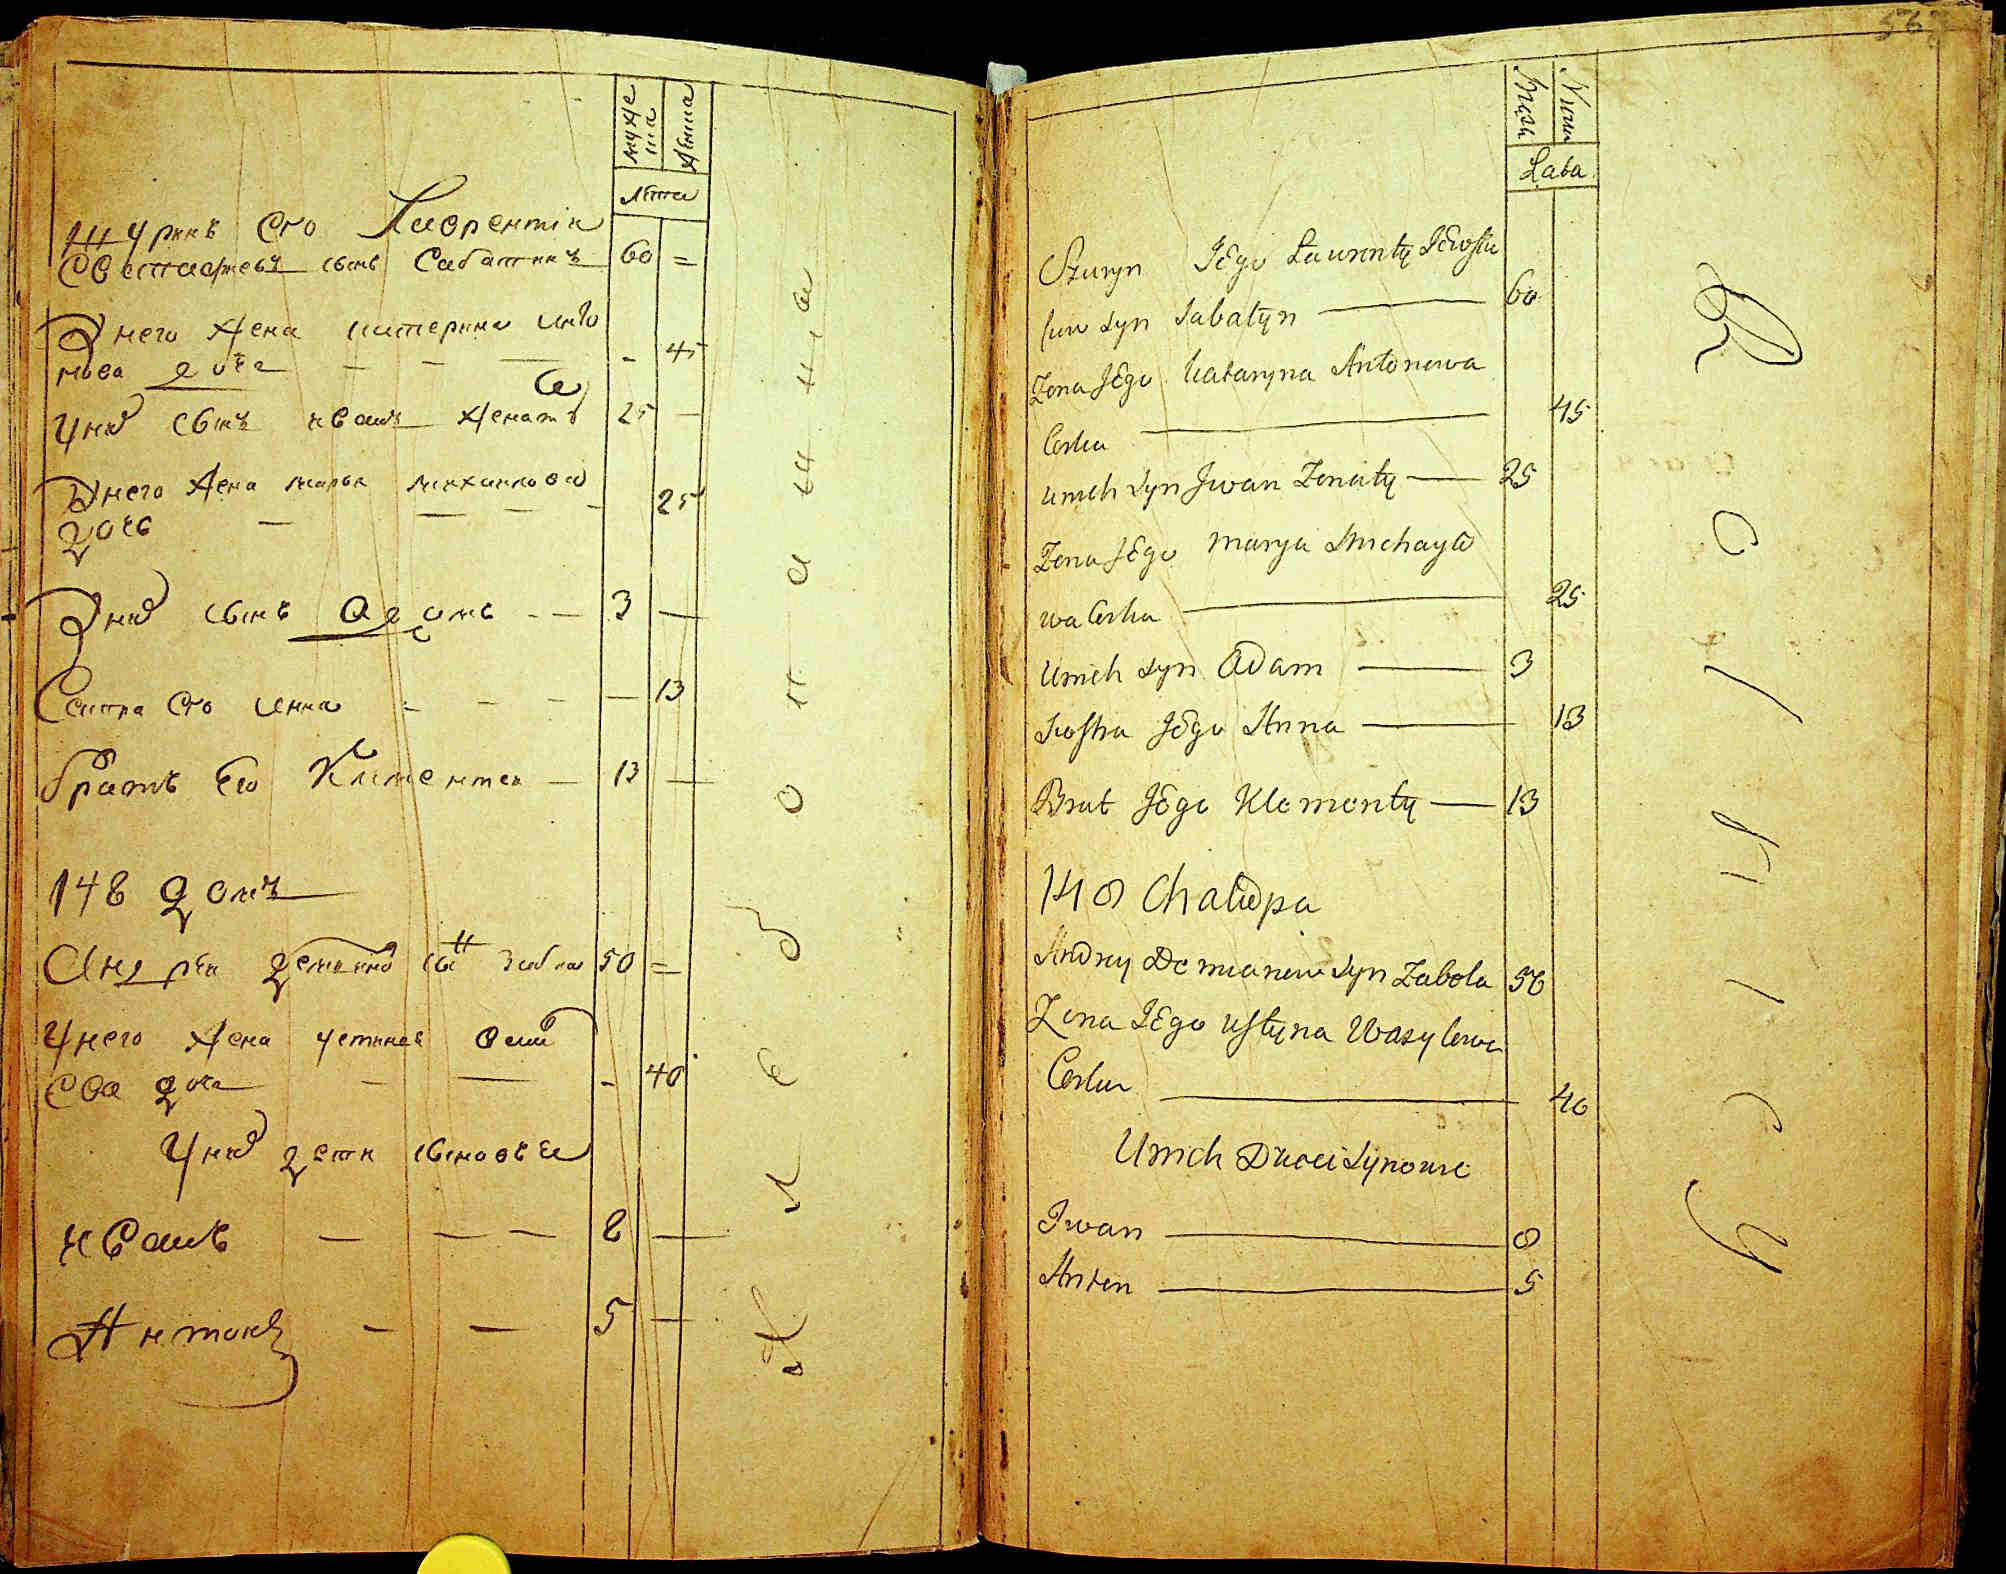 муже
ша
жѣнша
Лѣта
Шуринъ Его Лаврентіи
Евстафіевъ сынъ Сабатинъ 60 =
Унего жена катерина анто
нова дочь — — — - 45
Унихъ сынъ иванъ женатъ 25 —
Унего жена марья михаилова
дочь — — — - 25
Унихъ сынъ Адамъ - — 3 —
Сестра Его анна - - - — 13
братъ Его Климентеи — 13 —
148 домъ
Андреи демьяновъ сынъ Забла 50 =
Унего жена устинья
ева дочь — — - 40
Унихъ дети сыновья
иванъ — — — 8 —
Антонъ — — 5 —
567
Męzk
Niew
Lata
Szuryn JEgo Ławrenty JEwsta
few syn Sabatyn — 60
Zona JEgo Kataryna Antonowa
Corka — 45
Unich syn Jwan Zonaty — 25
Zona JEgo Marya Michayło
wa Corka — 25
Unich syn Adam — 3
Siostra JEgo Anna — 13
Brat JEgo Klementy — 13
148 Chałupa
Andrey Demianow syn Zabola 50
Zona JEgo Ustyna Wasylowa
Corka — 40
Unich Dzieci Synowie
Jwan — 8
Anton — 5